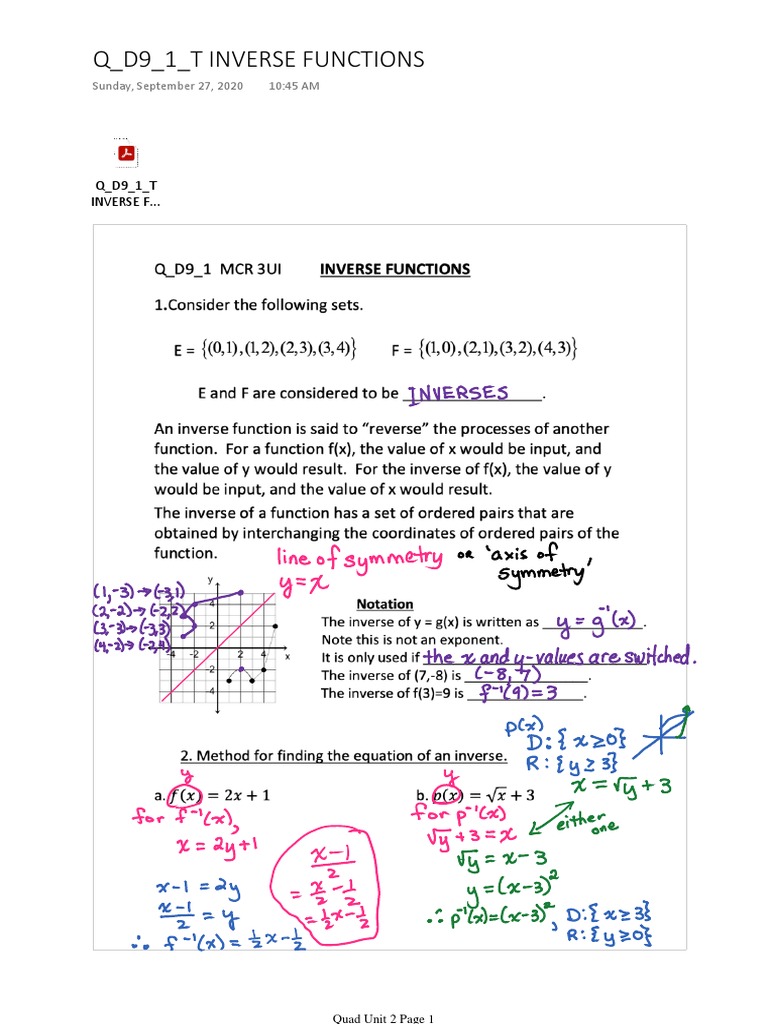 Q_D9_1_T INVERSE FUNCTIONS
Sunday, September 27, 2020 10:45 AM
Q_D9_1_T
INVERSE F...
Q_D9_1 MCR 3UI INVERSE FUNCTIONS
1.Consider the following sets.
E = {(0,1),(1,2),(2,3),(3,4)} F = {(1,0),(2,1),(3,2),(4,3)}
E and F are considered to be INVERSES.
An inverse function is said to “reverse” the processes of another
function. For a function f(x), the value of x would be input, and
the value of y would result. For the inverse of f(x), the value of y
would be input, and the value of x would result.
The inverse of a function has a set of ordered pairs that are
obtained by interchanging the coordinates of ordered pairs of the
function.
line of symmetry or 'axis of
symmetry'
y=x
(1,-3)→(-3,1)
(2,-2)→(-2,2)
(3,-3)→(-3,3)
(4,-2)→(-2,4)
y
4
2
-4 -2 2 4 x
-2
-4
Notation
The inverse of y = g(x) is written as y = g⁻¹(x).
Note this is not an exponent.
It is only used if the x and y-values are switched.
The inverse of (7,-8) is (-8, 7).
The inverse of f(3)=9 is f⁻¹(9)=3.
p(x)
D:{x≥0}
R:{y≥3}
2. Method for finding the equation of an inverse.
y
a. f(x) = 2x + 1
for f⁻¹(x),
x = 2y+1
x-1 = 2y
x-1/2 = y
∴ f⁻¹(x) = 1/2x-1/2
x-1/2
= x/2 - 1/2
= 1/2x - 1/2
y
b. p(x) = √x + 3
x = √y + 3
for p⁻¹(x)
√y + 3 = x
either
one
√y = x-3
y = (x-3)²
∴ p⁻¹(x) = (x-3)², D:{x≥3}
R:{y≥0}
Quad Unit 2 Page 1